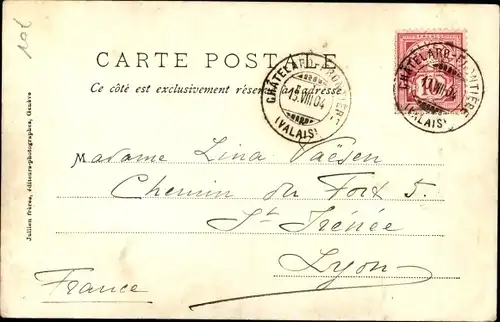 102
CARTE POSTALE
Ce côté est exclusivement réservé à l'adresse
CHÂTELARD-FRONTIÈRE
13.VIII.04
(VALAIS)
CHÂTELARD-FRONTIÈRE
VIII.04
(VALAIS)
Madame Lina Vaësen
Chemin du Fort 5.
St Irénée
Lyon
France
Jullien frères, éditeurs-photographes, Genève